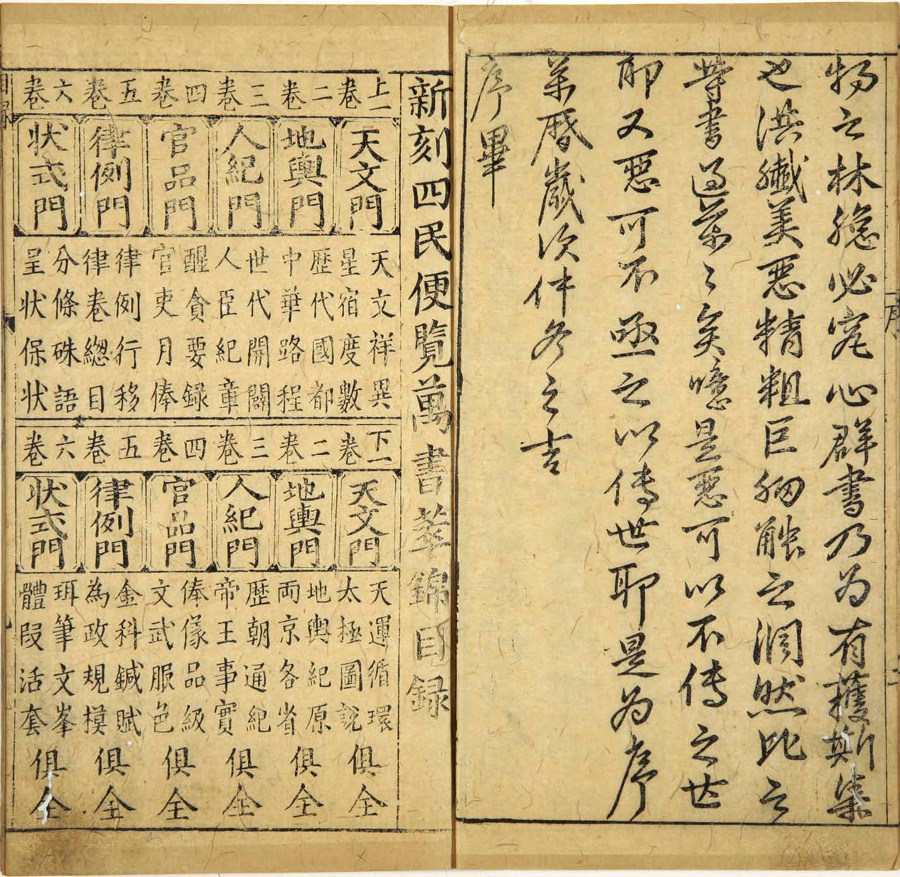 物之林總必究心群書乃為有獲斯集
也洪纖美惡精粗巨細觸之洞然此之
等書過萬之矣噫是惡可以不傳之世
耶又惡可不亟之以傳世耶是為序
萬曆歲次仲冬之吉
序畢
新刻四民便覽萬書萃錦目録
上一卷
天文門
天文祥異
星宿度數
二卷
地輿門
歷代國都
中華路程
三卷
人紀門
世代開闢
人臣紀章
四卷
官品門
醒貪要録
官吏月俸
五卷
律例門
律例行移
律卷總目
六卷
状式門
分條硃語
呈状保状
下一卷
天文門
天運循環
太極圖説
俱全
二卷
地輿門
地輿紀原
両京各省
俱全
三卷
人紀門
歷朝通紀
帝王事實
俱全
四卷
官品門
俸傢品級
文武服色
俱全
五卷
律例門
金科鍼賦
為政規模
俱全
六卷
状式門
珥筆文峯
體段活套
俱全